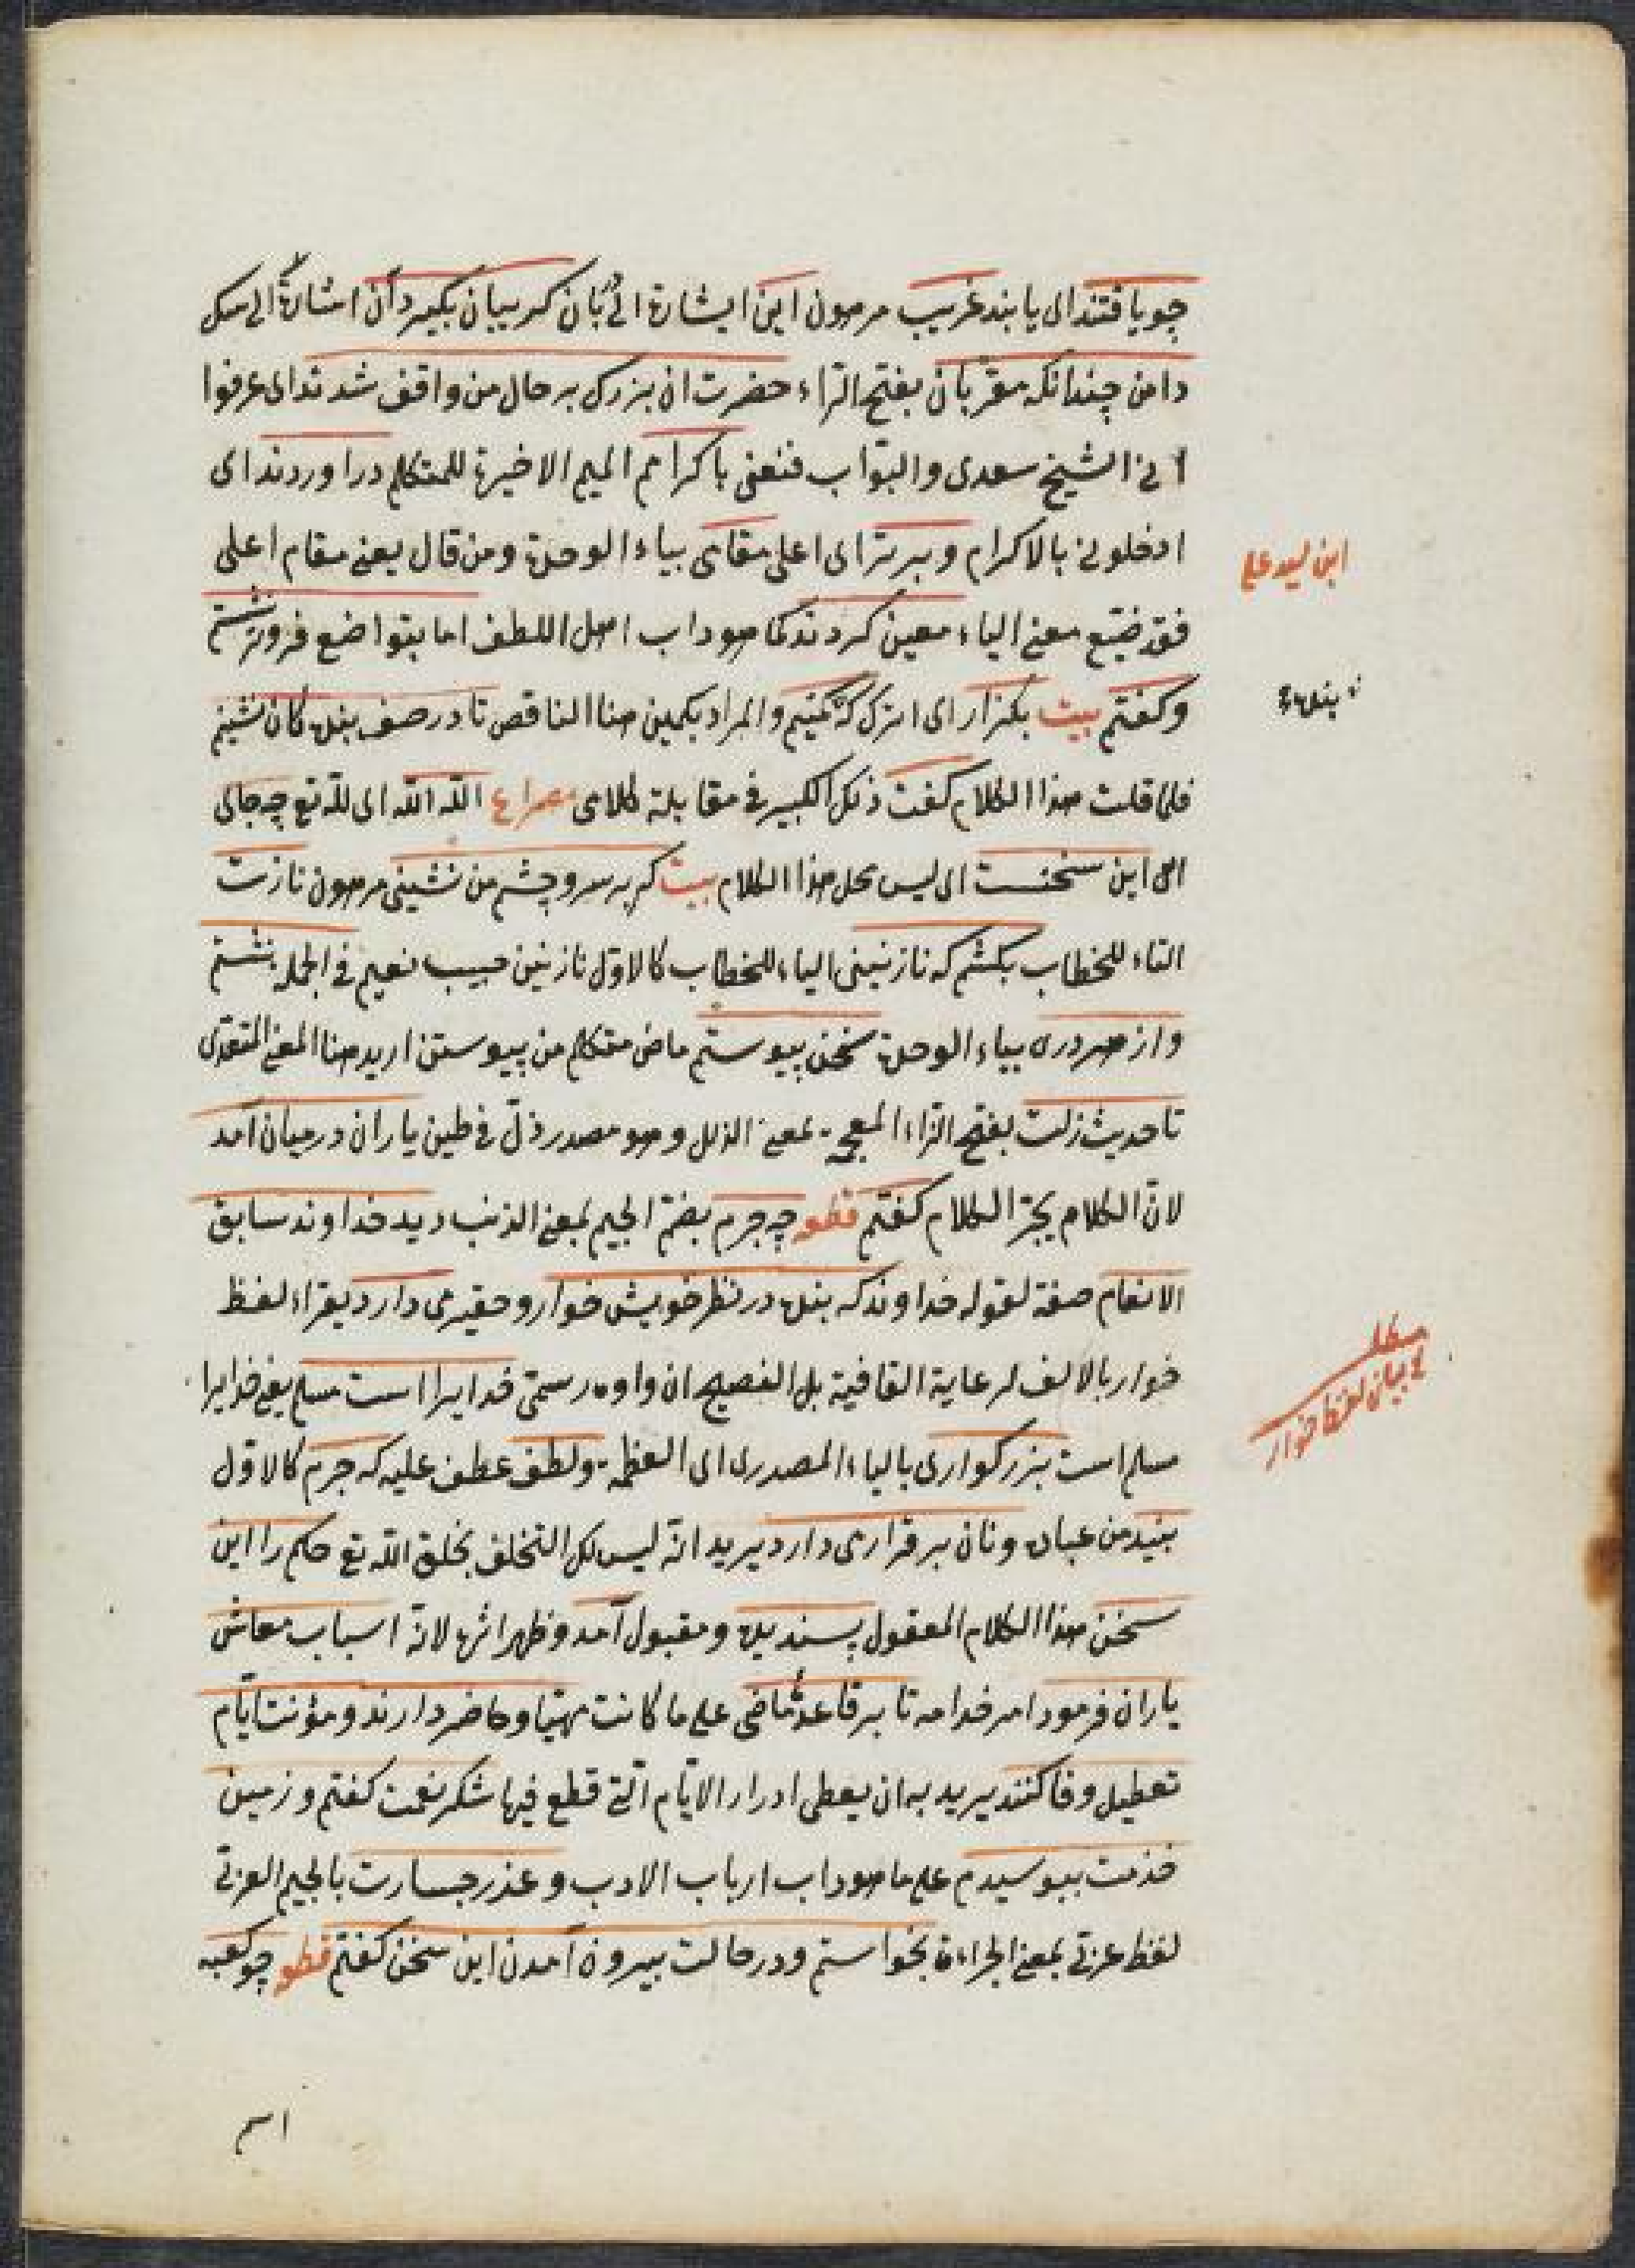 چو یافتند ای یابند غریب مرهون این ایشارة الی بان کریبان بکیرد آن اشارة الی سک
دامن چندانکه مقربان بفتح الراء حضرت ان بزرک بر حال من واقف شدند ای عرفوا
انی الشیخ سعدی والبواب منعنی باکرامم المیم الاخیرة للمتکلم دراوردند ای
ادخلونی بالاکرام وبرتر ای اعلی مقامی بیاء الوحدة ومن قال یعنی مقام اعلی
فقد ضیع معنی الیاء معین کردند کما هو داب اهل اللطف اما بتواضع فروتر نشستم
وکفتم بیت بکزار ای اترک که کمینم والمراد بکمین هنا الناقص تا در صف بندکان نشینم
فلما قلت هذا الکلام کفت ذلک الکبیر فی مقابلة کلامی مصراع الله الله ای لله تع چه جای
این سخنست ای لیس محل هذا الکلام بیت کر بر سر وچشم من نشینی مرهون نازت
التاء للخطاب بکشم که نازنینی الیاء للخطاب کالاول نازنین حبیب نعیم فی الجمله بنشستم
واز هر دری بیاء الوحدة سخن پیوستم ماض متکلم من پیوستن ارید هنا المعنی المتعدی
تا حدیث زلت بفتح الزاء المعجمة بمعنی الزلل وهو مصدر زل فی طین یاران در میان آمد
لان الکلام یجر الکلام کفتم قطعه چه جرم بضم الجیم بمعنی الذنب دید خداوند سابق
الانعام صفة لقوله خداوند که بنده در نظر خویش خوار وحقیر می دارد یقراء لفظ
خوار بالالف لرعایة القافیة بل الفصیح ان واوه رسمی خدایرا است مسلم یعنی خدایرا
مسلم است بزرکواری بالیاء المصدری ای العظمة ولطف عطف علیه که جرم کالاول
بیند من عباده ونان برقرار می دارد یرید انه لیس لک التخلق بخلق الله تع حاکم را این
سخن هذا الکلام المعقول پسندیده ومقبول آمد وظهر اثره لانه اسباب معاش
یاران فرمود امر خدامه تا بر قاعدۀ ماضی علی ما کانت مهیا وحاضر دارند ومؤنت ایام
تعطیل وفا کنند یرید به ان یعطی ادرار الایام التی قطع فیها شکر نعمت کفتم وزمین
خدمت ببوسیدم علی ما هو داب ارباب الادب وعذر جسارت بالجیم العربی
لفظ عربی بمعنی الجراءة بخواستم ودر حالت بیرون آمدن این سخن کفتم قطعه چو کعبه
ابن سید علی
بنده
مطلب
فی بیان لفظ خوار